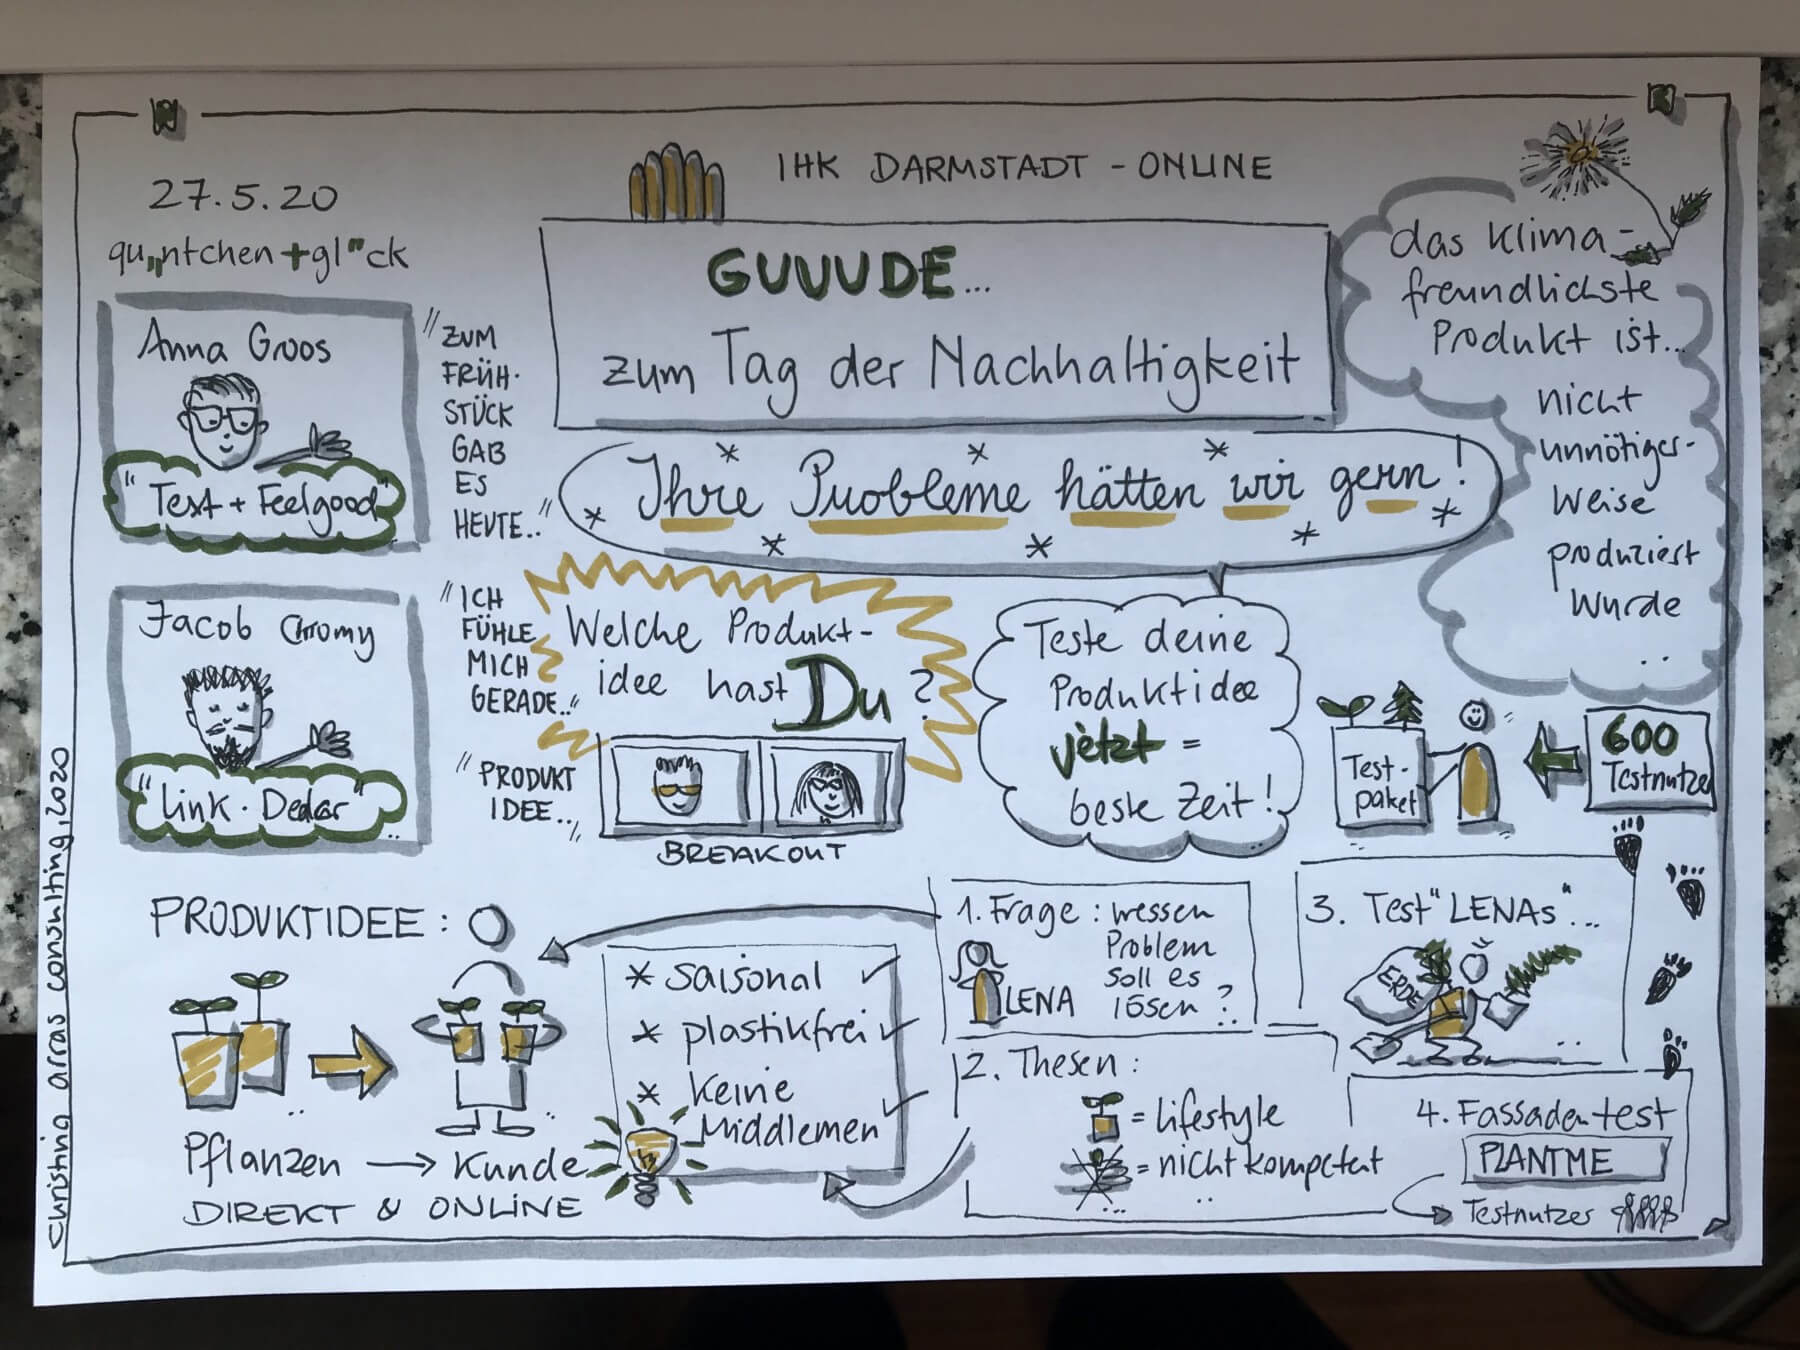 27.5.20
qu„ntchen+gl"ck
IHK DARMSTADT - ONLINE
GUUUDE...
zum Tag der Nachhaltigkeit
das Klima-
freundlichste
Produkt ist...
nicht
unnötiger-
Weise
produziert
wurde
..
Anna Groos
"Text + Feelgood"
"ZUM
FRÜH-
STÜCK
GAB
ES
HEUTE.."
Ihre Probleme hätten wir gern!
Jacob Chromy
"Link-Dealer"
"ICH
FÜHLE
MICH
GERADE.."
"PRODUKT
IDEE..."
Welche Produkt-
idee hast Du?
BREAKOUT
Teste deine
Produktidee
jetzt =
beste Zeit!
Test-
paket
600
Testnutzer
PRODUKTIDEE:
Pflanzen → Kunde
DIREKT & ONLINE
* saisonal ✓
* plastikfrei ✓
* keine
Middlemen ✓
1. Frage: wessen
Problem
soll es
lösen?
LENA
2. Thesen:
= lifestyle
= nicht kompetent
3. Test "LENAs"...
ERDE
4. Fassadentest
PLANTME
Testnutzer
christina arras consulting, 2020